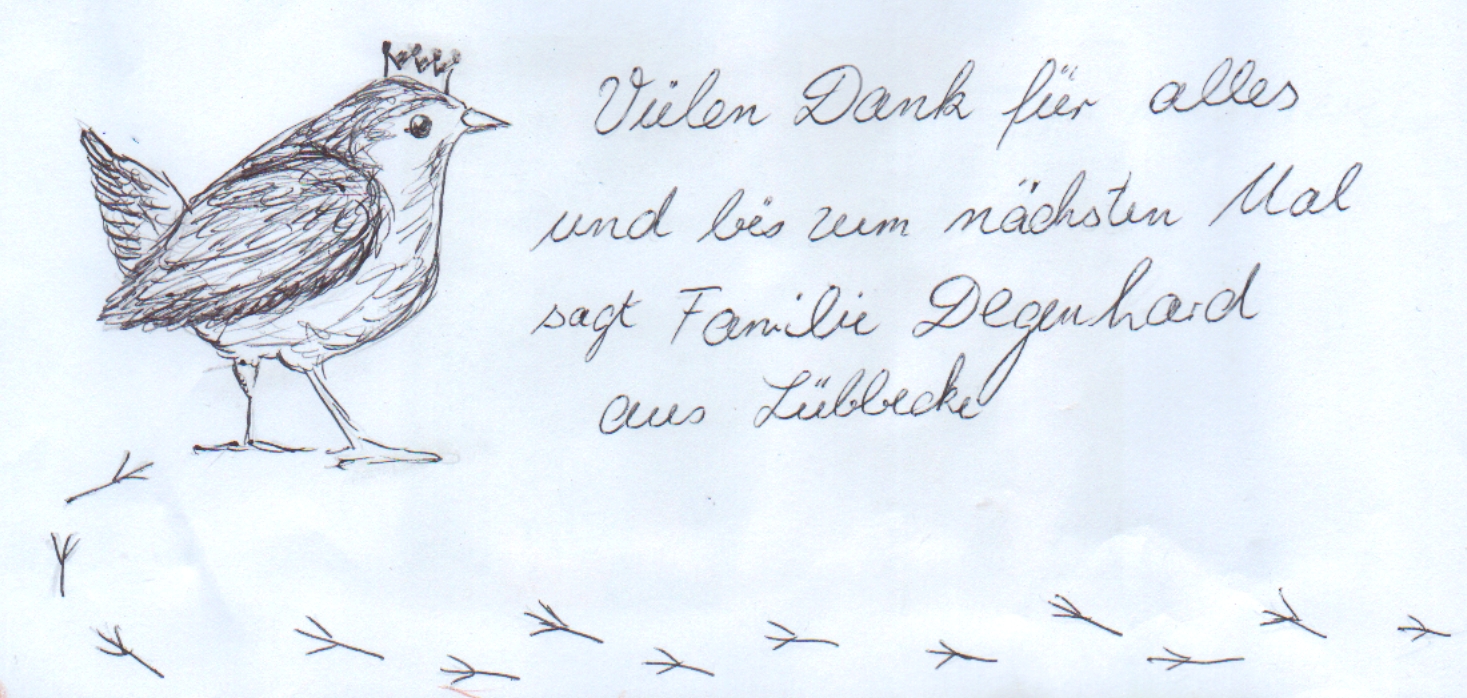 Vielen Dank für alles
und bis zum nächsten Mal
sagt Familie Degenhard
aus Lübbecke